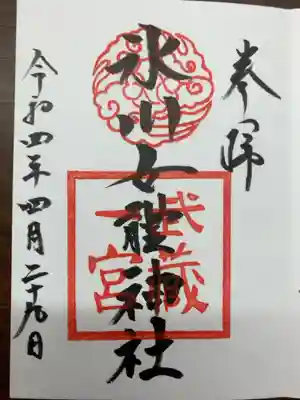 奉拝
氷川女體神社
武蔵
一宮
令和四年四月二十九日